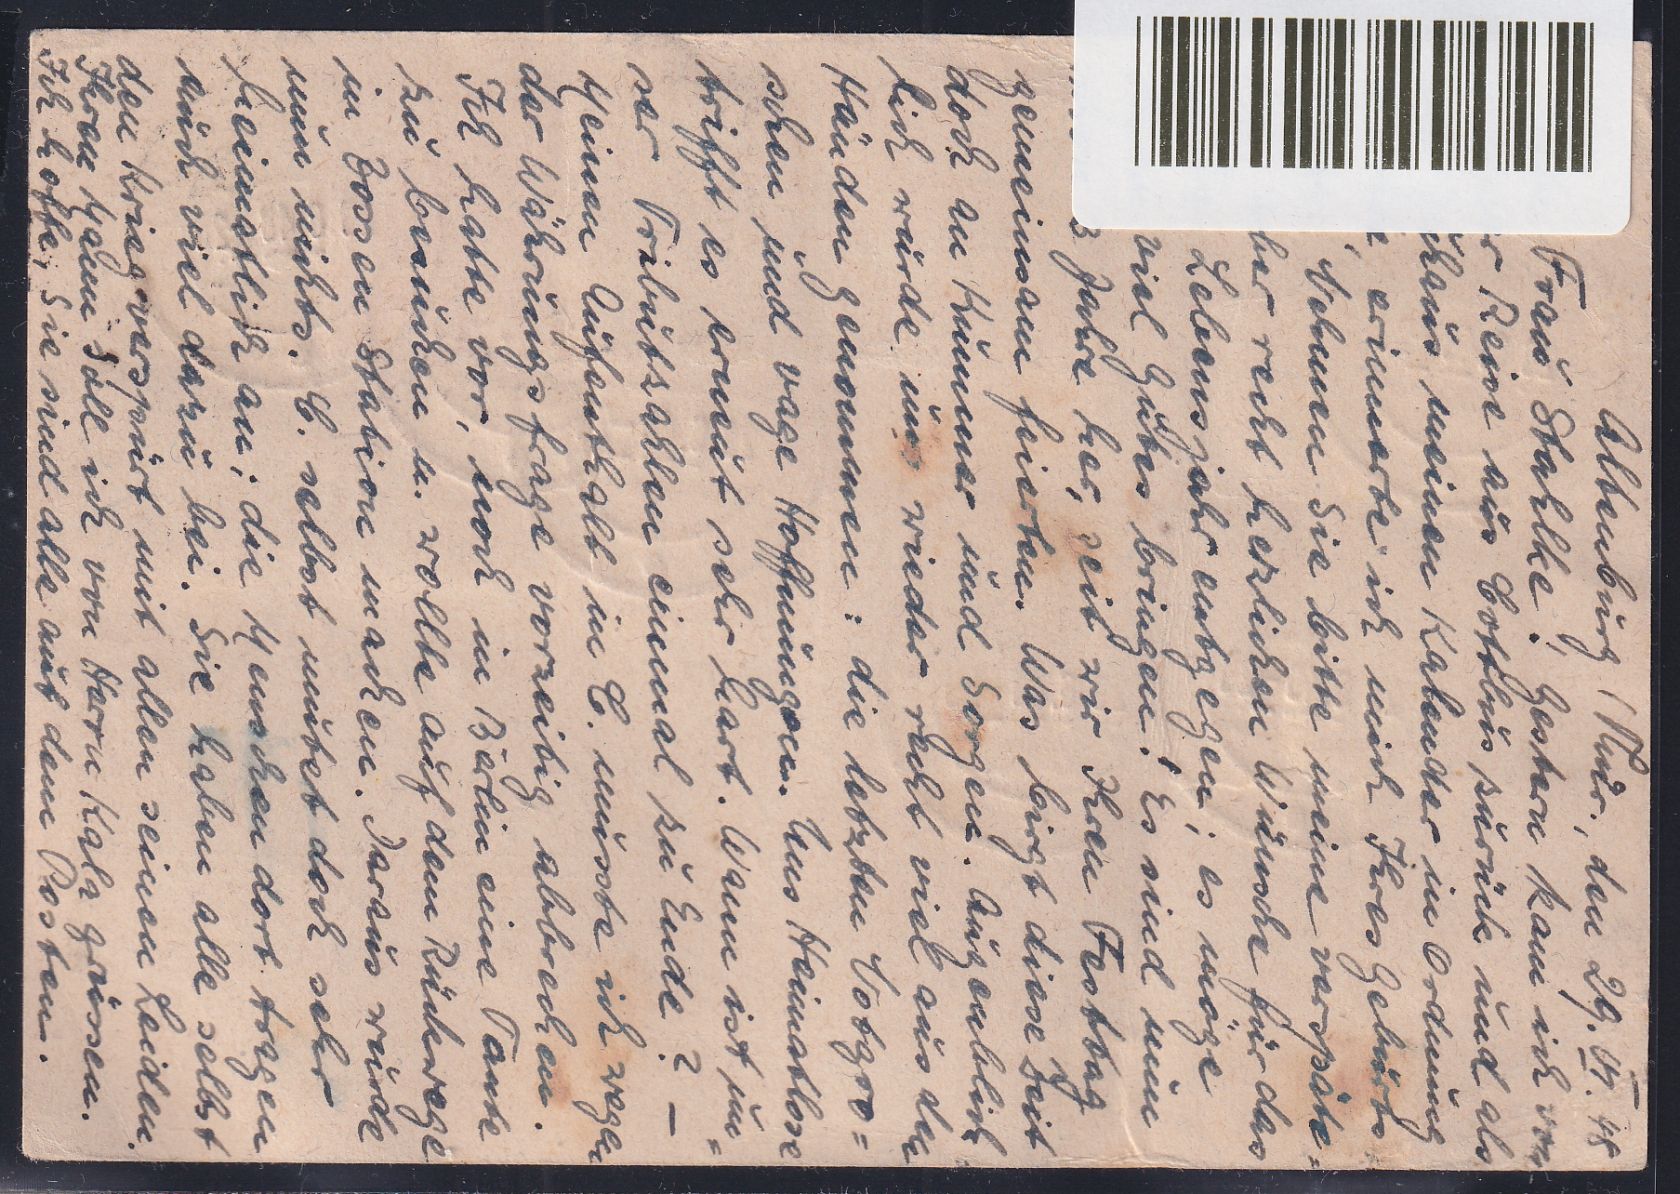 Altenburg (Thür., den 29. VI. 48
Frau Stahlke! Gestern kam ich von
r Reise aus Cottbus zurück und als
meinen Kalender in Ordnung
erinnerte ich mich Ihres Geburts
Nehmen Sie bitte meine verspäte-
ber recht herzlichen Wünsche für das
Lebensjahr entgegen; es möge
viel Gutes bringen! Es sind nun
Jahre her, seit wir Ihren Festtag
gemeinsam feierten. Was birgt diese Zeit
doch an Kummer und Sorgen. Augenblick
lich wurde uns wieder recht viel aus den
Händen genommen: die letzten Notgro=
schen und vage Hoffnungen. Uns Heimatlose
trifft es erneut sehr hart. Wann ist un=
ser Tributzahlen einmal zu Ende? –
Meinen Aufenthalt in C. musste ich wegen
der Währungsfrage vorzeitig abbrechen.
Ich hatte vor, noch in Berlin eine Tante
zu besuchen u. wollte auf dem Rückwege
in Zossen Station machen. Daraus wurde
nun nichts. C. selbst mutet doch sehr
heimatlich an; die Menschen dort tragen
auch viel dazu bei. Sie haben alle selbst
den Krieg verspürt mit allen seinen Leiden.
Ihren Mann soll ich von Herrn Kalz grüssen.
Ich hoffe, Sie sind alle auf dem Posten.